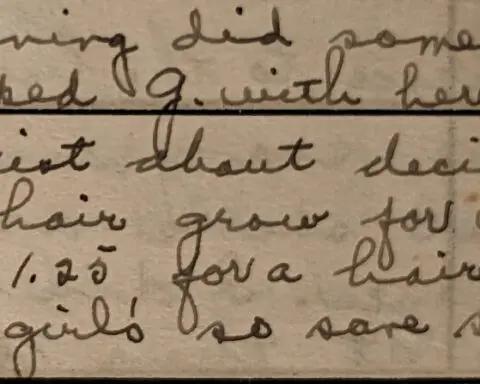 ning did some
ped G. with her
ist about deci
hair grow for
1.25 for a hair
girl's so sare